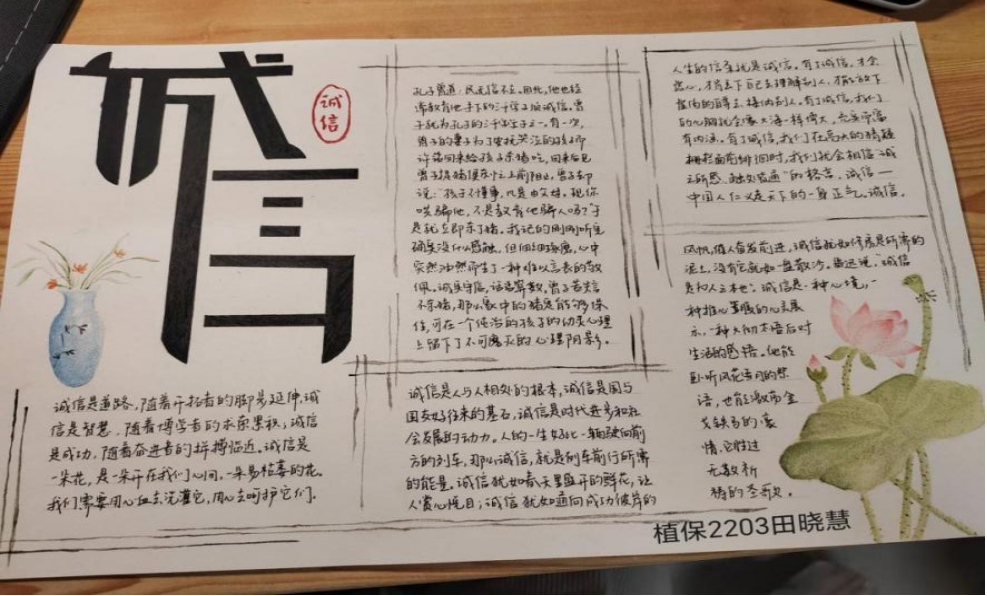 诚信
诚
信
诚信是道路，随着开拓者的脚步延伸，诚
信是智慧，随着博学者的求索累积；诚信
是成功，随着奋进者的拼搏临近。诚信是
一朵花，是一朵开在我们心间，一朵易枯萎的花。
我们需要用心血去浇灌它，用心去呵护它们。
孔子曾道：民无信不立。因此，他也经
常教育他手下的三千学子应诚信。曾
子就为孔子的三千学子之一。有一次，
曾子的妻子为了安抚哭泣的孩子而
许诺回来给孩子杀猪吃，回来后见
曾子捉猪便在忙上前阻止，曾子却
说："孩子不懂事，凡是由父母，现你
哄骗他，不是教育他骗人吗？"于
是就立即杀了猪。我记的刚刚听见
确实没什么感触，但细细琢磨，心中
突然油然而生了一种难以言表的敬
佩。诚实守信，话语算数，曾子若笑信
不杀猪，那么家中的猪是能够保
住，可在一个纯洁的孩子的幼灵心理
上留下了不可磨灭的心理阴影。
诚信是人与人相处的根本，诚信是国与
国友好往来的基石，诚信是时代进步和社
会发展的动力。人的一生好比一辆驶向前
方的列车，那么诚信，就是列车前行所需
的能量。诚信犹如春天里盛开的鲜花，让
人赏心悦目；诚信犹如通向成功彼岸的
人生的信条就是诚信。有了诚信，才会
宽心，才肯去下自己去理解别人，才能放下
虚伪的面具去接纳别人。有了诚信，我们
的心胸就会像大海一样博大，充实而富
有内涵。有了诚信，我们在高大的精雅
栅栏面前徘徊时，我们就会相信"诚
之所感，触处皆通"的格言，诚信一
中国人仁义走天下的一身正气。诚信，
风帆，催人奋发前进。诚信就如修房屋是所需的
泥土，没有它就如一盘散沙。鲁迅说："诚信
是为人之本也；诚信是一种心境，一
种推心置腹的心灵展
示，一种大彻大悟后对
生活的感悟。他能
倒听风花雪月的絮
语，也能激荡金
戈铁马的豪
情。它胜过
无数祈
祷的圣歌。
植保2203田晓慧